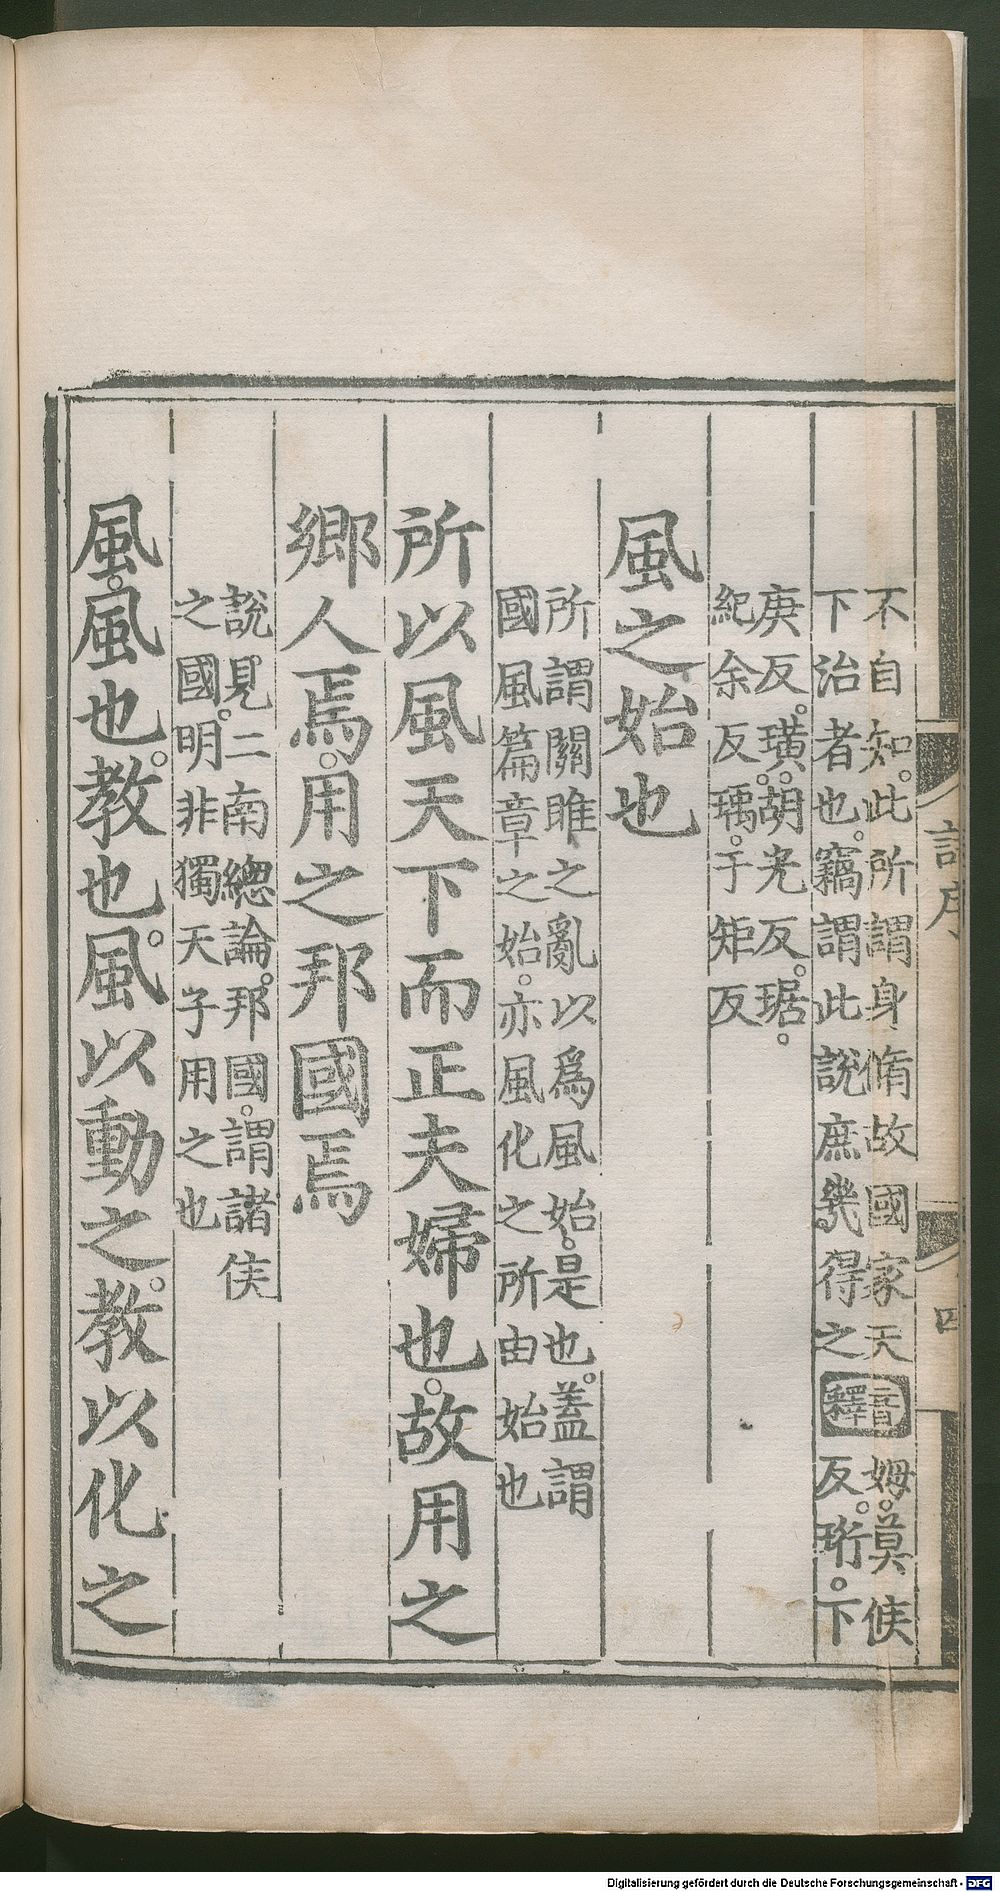 不自知。此所謂身脩故國家天
下治者也。竊謂此說庶幾得之
音釋
姆。莫侯
反。珩。下
庚反。璜。胡光反。琚。
紀余反瑀。于矩反
風之始也
所謂關雎之亂以爲風始。是也。蓋謂
國風篇章之始。亦風化之所由始也
所以風天下而正夫婦也。故用之
鄉人焉。用之邦國焉
說見。二南總論。邦國。謂諸侯
之國明非獨天子用之也
風。風也。教也。風以動之。教以化之
詩序
四
Digitalisierung gefördert durch die Deutsche Forschungsgemeinschaft - DFG